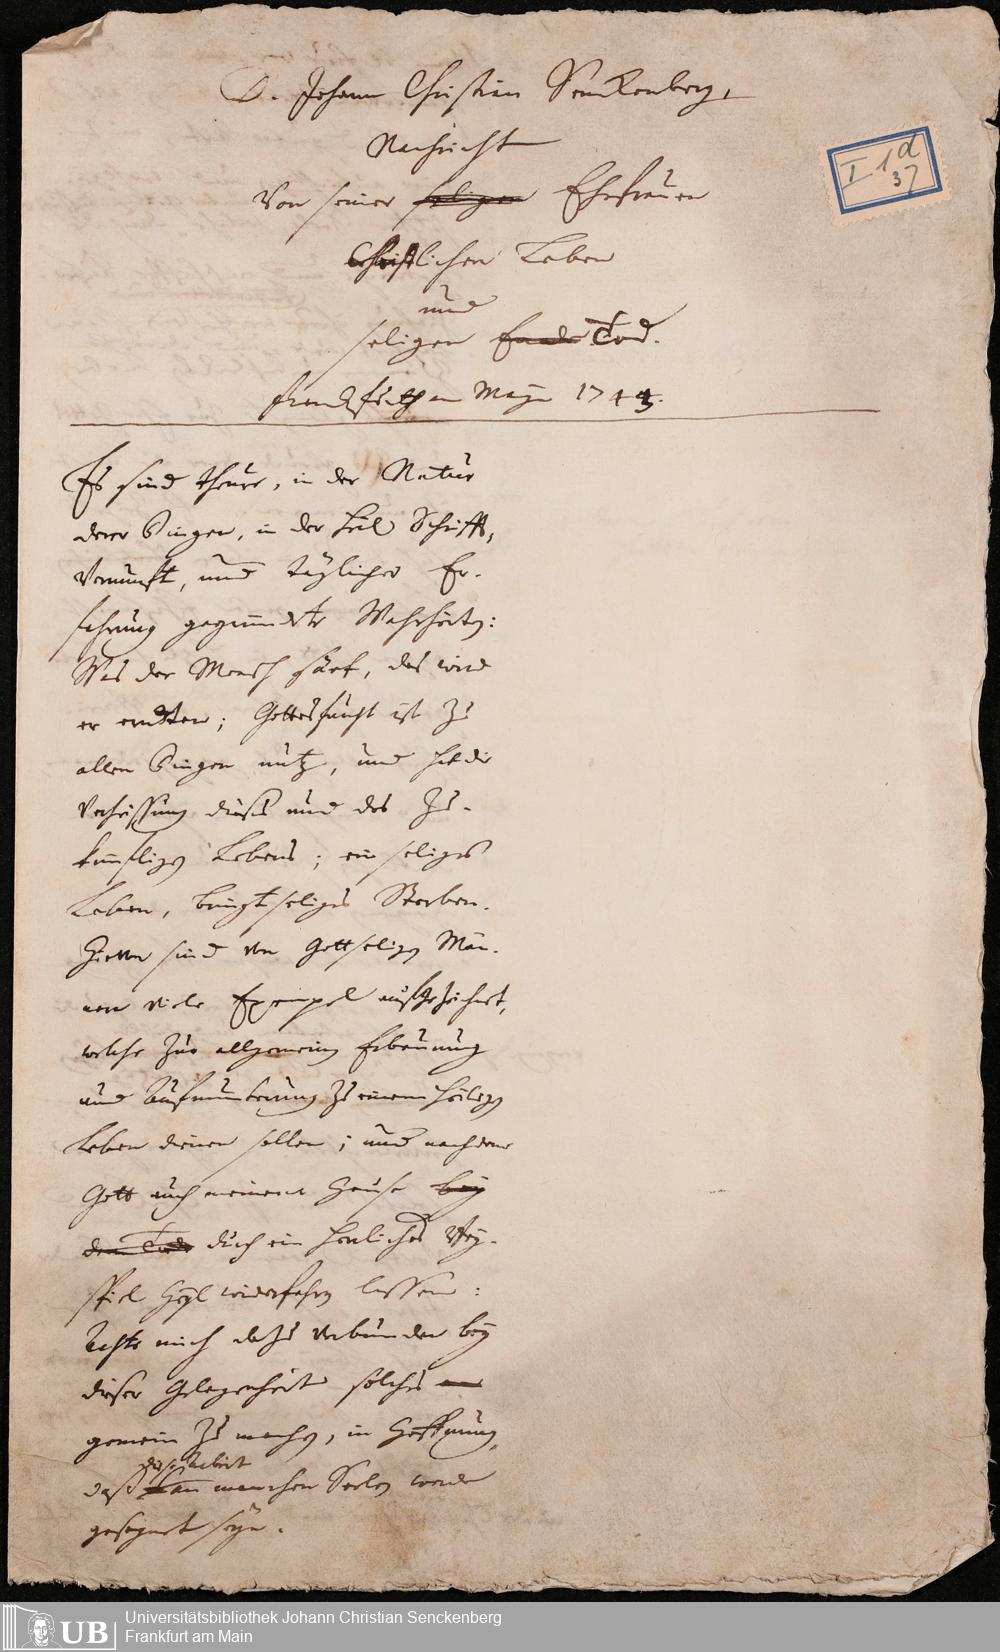 D. Johann Christian Senckenberg,
Nachricht
Von seiner seligen Ehefrauen
Christlichen Leben
und
seligen Ende Tod.
Franckfurth am Mayn 1743.
I 1 d
37
Es sind theure, in der Natur
derer Dingen, in der Heil. Schrifft,
Vernunft, und täglicher Er-
fahrung gegründete Wahrheiten:
Was der Mensch säet, das wird
er erndten; Gottesfurcht ist zu
allen Dingen nutz, und hat die
Verheissung dieses und des Zu-
kunfftigen Lebens; ein seliges
Leben, bringt seliges Sterben.
Hievon sind von Gottseligen Män-
nern viele Exempel aufgezeichnet,
welche zur allgemeinen Erbauung
und Aufmunterung zu einem heiligen
Leben dienen sollen; und nachdeme
Gott auch meinem Hause bey
dem Tode durch ein herrliches Bey-
spiel Heyl wiederfahren lassen:
Achte mich dazu verbunden bey
dieser Gelegenheit solches
gemein zu machen, in Hoffnung,
diese Arbeit
daß an manchen Seelen werde
gesegnet seyn.
UB
Universitätsbibliothek Johann Christian Senckenberg
Frankfurt am Main